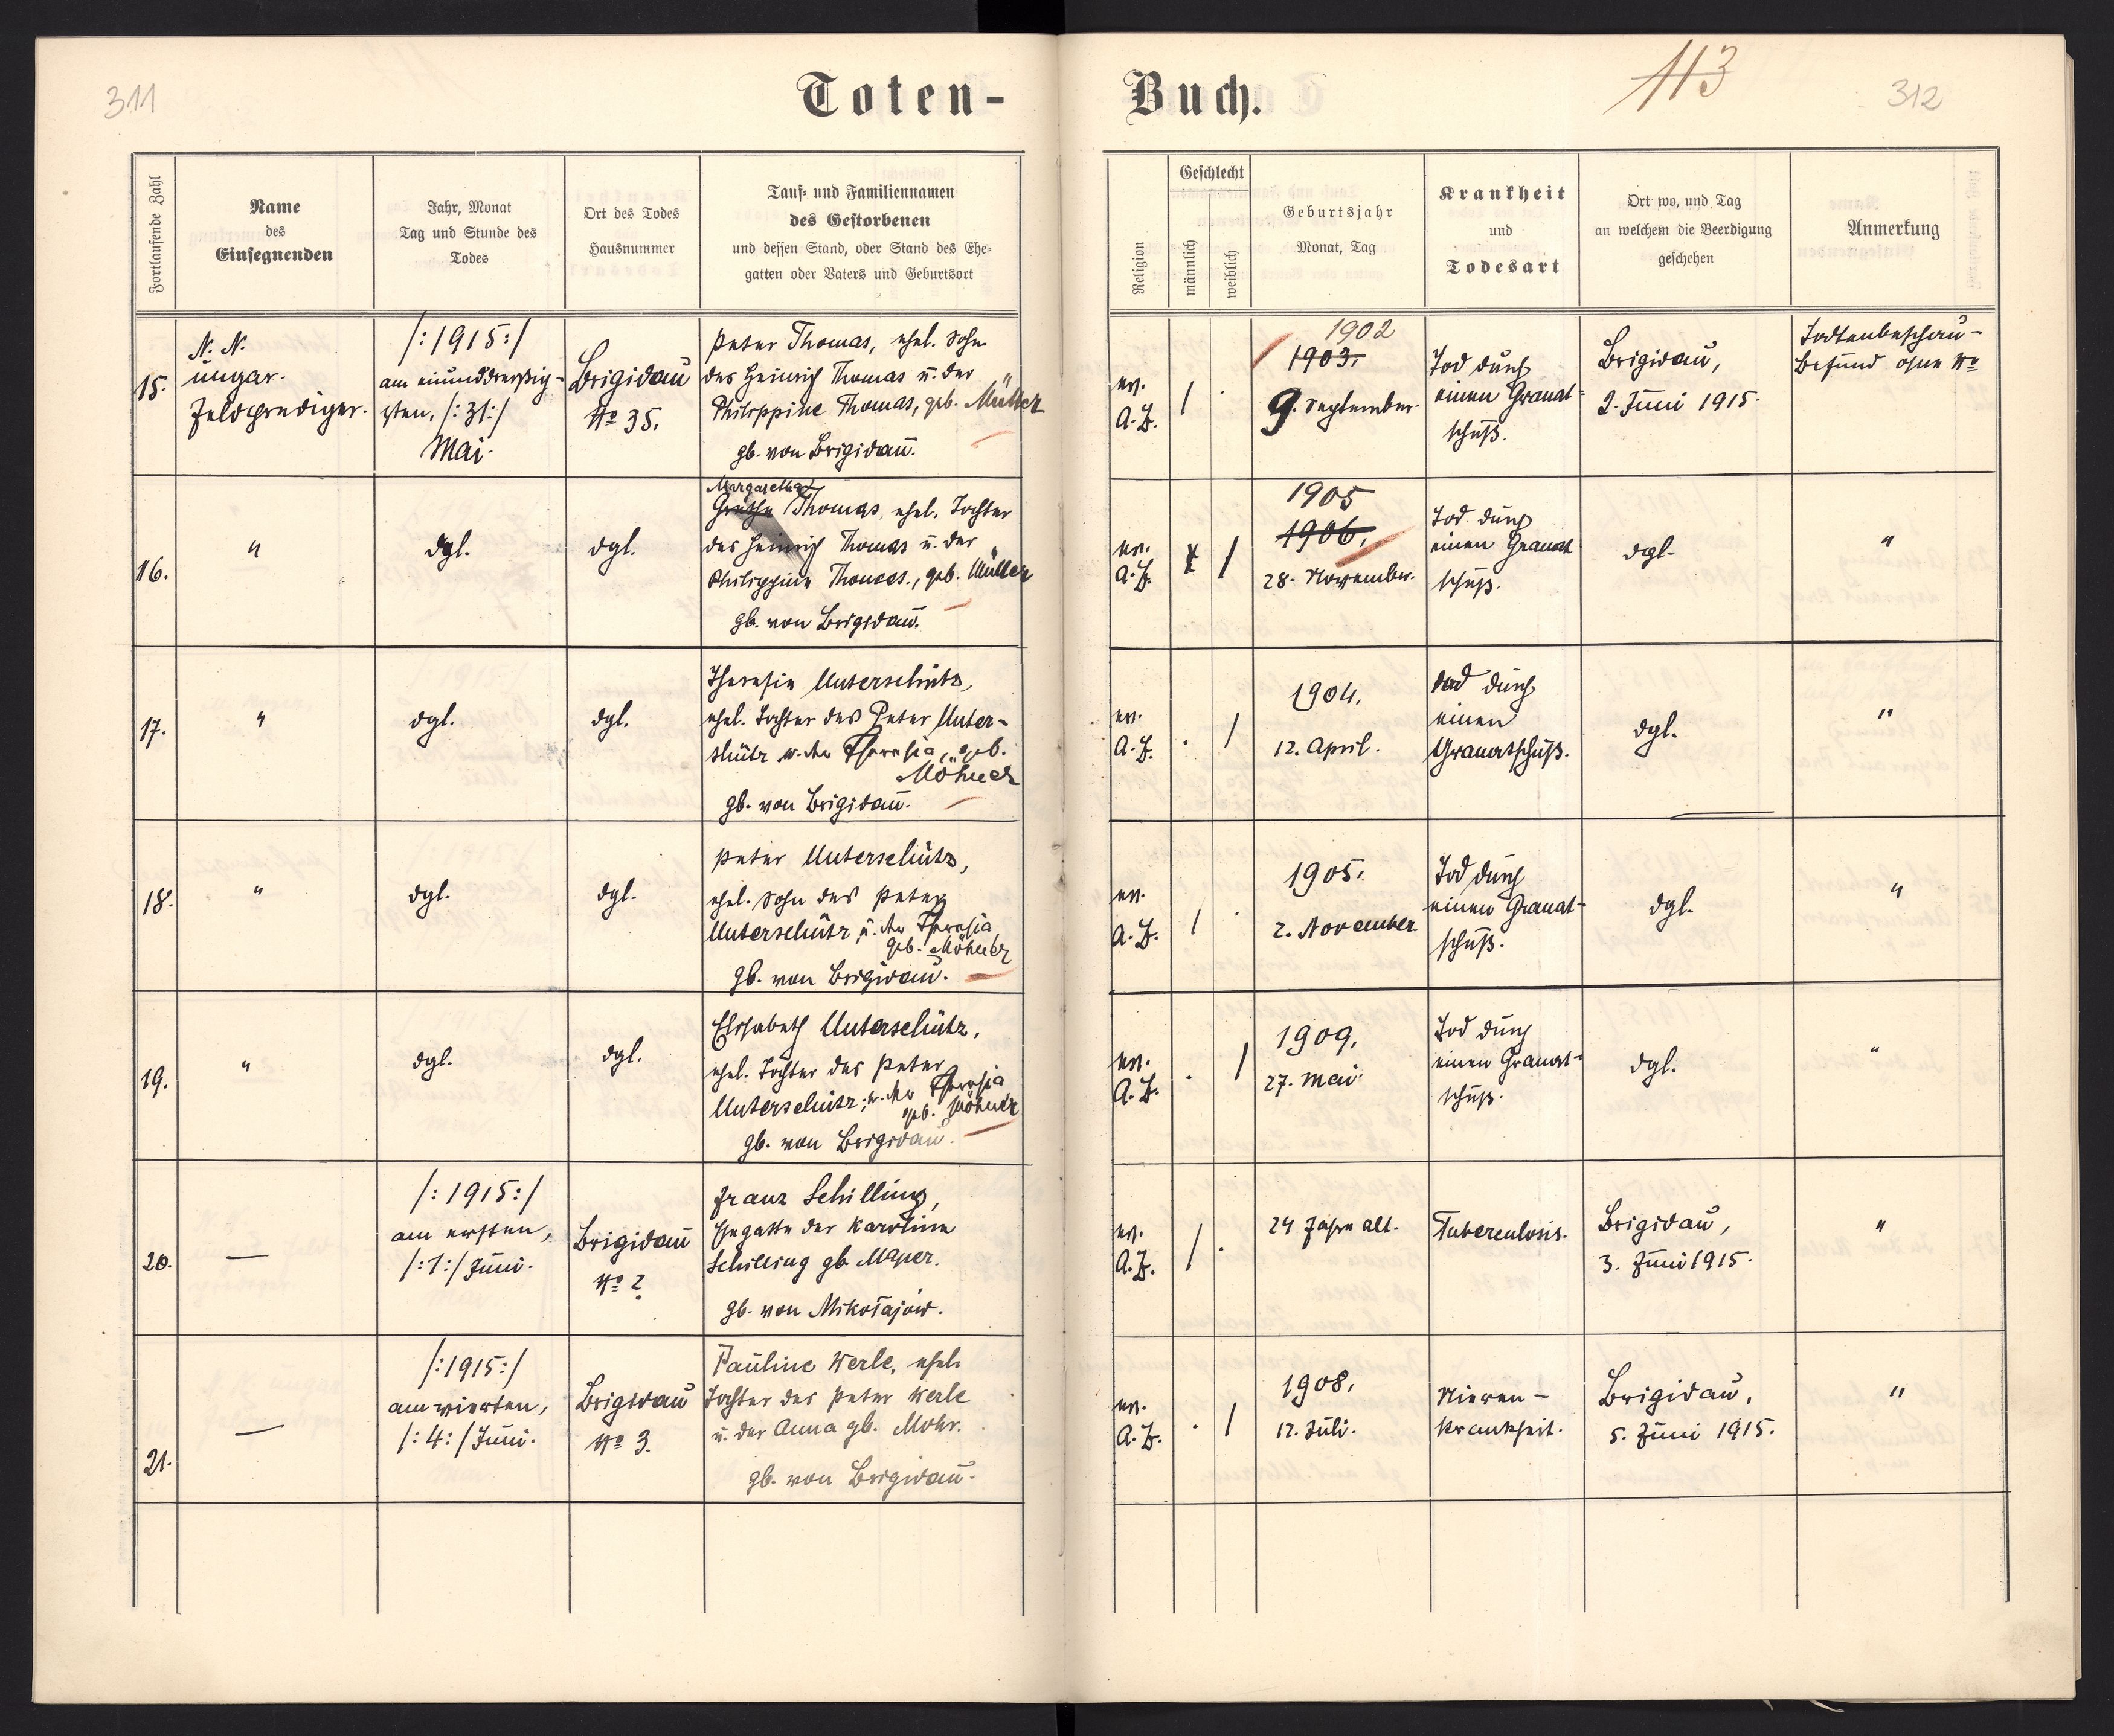 311
Toten-
Fortlaufende Zahl
Name
des
Einsegnenden
Jahr, Monat
Tag und Stunde des
Todes
Ort des Todes
Hausnummer
Tauf- und Familiennamen
des Gestorbenen
und dessen Stand, oder Stand des Ehe-
gatten oder Vaters und Geburtsort
15.
N. N.
ungar.
Feldprediger.
/:1915:/
am einunddreißig-
sten, /:31:/
Mai.
Brigidau
No 35.
Peter Thomas, ehel. Sohn
des Heinrich Thomas u. der
Philippine Thomas, geb. Müller
gb. von Brigidau.
16.
"
dgl.
dgl.
Margaretha
Grethe Thomas, ehel. Tochter
des Heinrich Thomas u. der
Philippine Thomas., geb. Müller
gb. von Brigidau.
17.
"
dgl.
dgl.
Theresia Unterschütz,
ehel. Tochter des Peter Unter-
schütz u. der Theresia, geb.
Möhner
gb. von Brigidau.
18.
"
dgl.
dgl.
Peter Unterschütz,
ehel. Sohn des Peter
Unterschütz, u. der Theresia
geb. Möhner
gb. von Brigidau.
19.
"
dgl.
dgl.
Elisabeth Unterschütz,
ehel. Tochter des Peter
Unterschütz; u. der Theresia
geb. Möhner
gb. von Brigidau.
20.
—
/:1915:/
am ersten,
/:1:/ Juni.
Brigidau
No ?
Franz Schilling,
Ehegatte der Karoline
Schilling gb. Mayer.
gb. von Mikołajów.
21.
—
/:1915:/
am vierten,
/:4:/ Juni.
Brigidau
No 3.
Pauline Werle, ehel.
Tochter des Peter Werle
u. der Anna gb. Mohr.
gb. von Brigidau.
Buch.
113
312
Religion
Geschlecht
männlich
weiblich
Geburtsjahr
Monat, Tag
Krankheit
und
Todesart
Ort wo, und Tag
an welchem die Beerdigung
geschehen
Anmerkung
ev.
A.B.
/
.
1902
1903.
9. September.
Tod durch
einen Granat-
schuß.
Brigidau,
2. Juni 1915.
Todtenbeschau-
befund ohne No
ev.
A.B.
/
1905
1906.
28. November.
Tod durch
einen Granat
schuß.
dgl.
"
ev.
A.B.
.
/
1904.
12. April.
Tod durch
einen
Granatschuß.
dgl.
"
ev.
A.B.
/
.
1905.
2. November
Tod durch
einen Granat-
schuß.
dgl.
"
ev.
A.B.
.
/
1909.
27. Mai.
Tod durch
einen Granat-
schuß.
dgl.
"
ev.
A.B.
/
.
24 Jahre alt.
Tuberculosis.
Brigidau,
3. Juni 1915.
"
ev.
A.B.
.
/
1908.
12. Juli.
Nieren-
krankheit.
Brigidau,
5. Juni 1915.
"